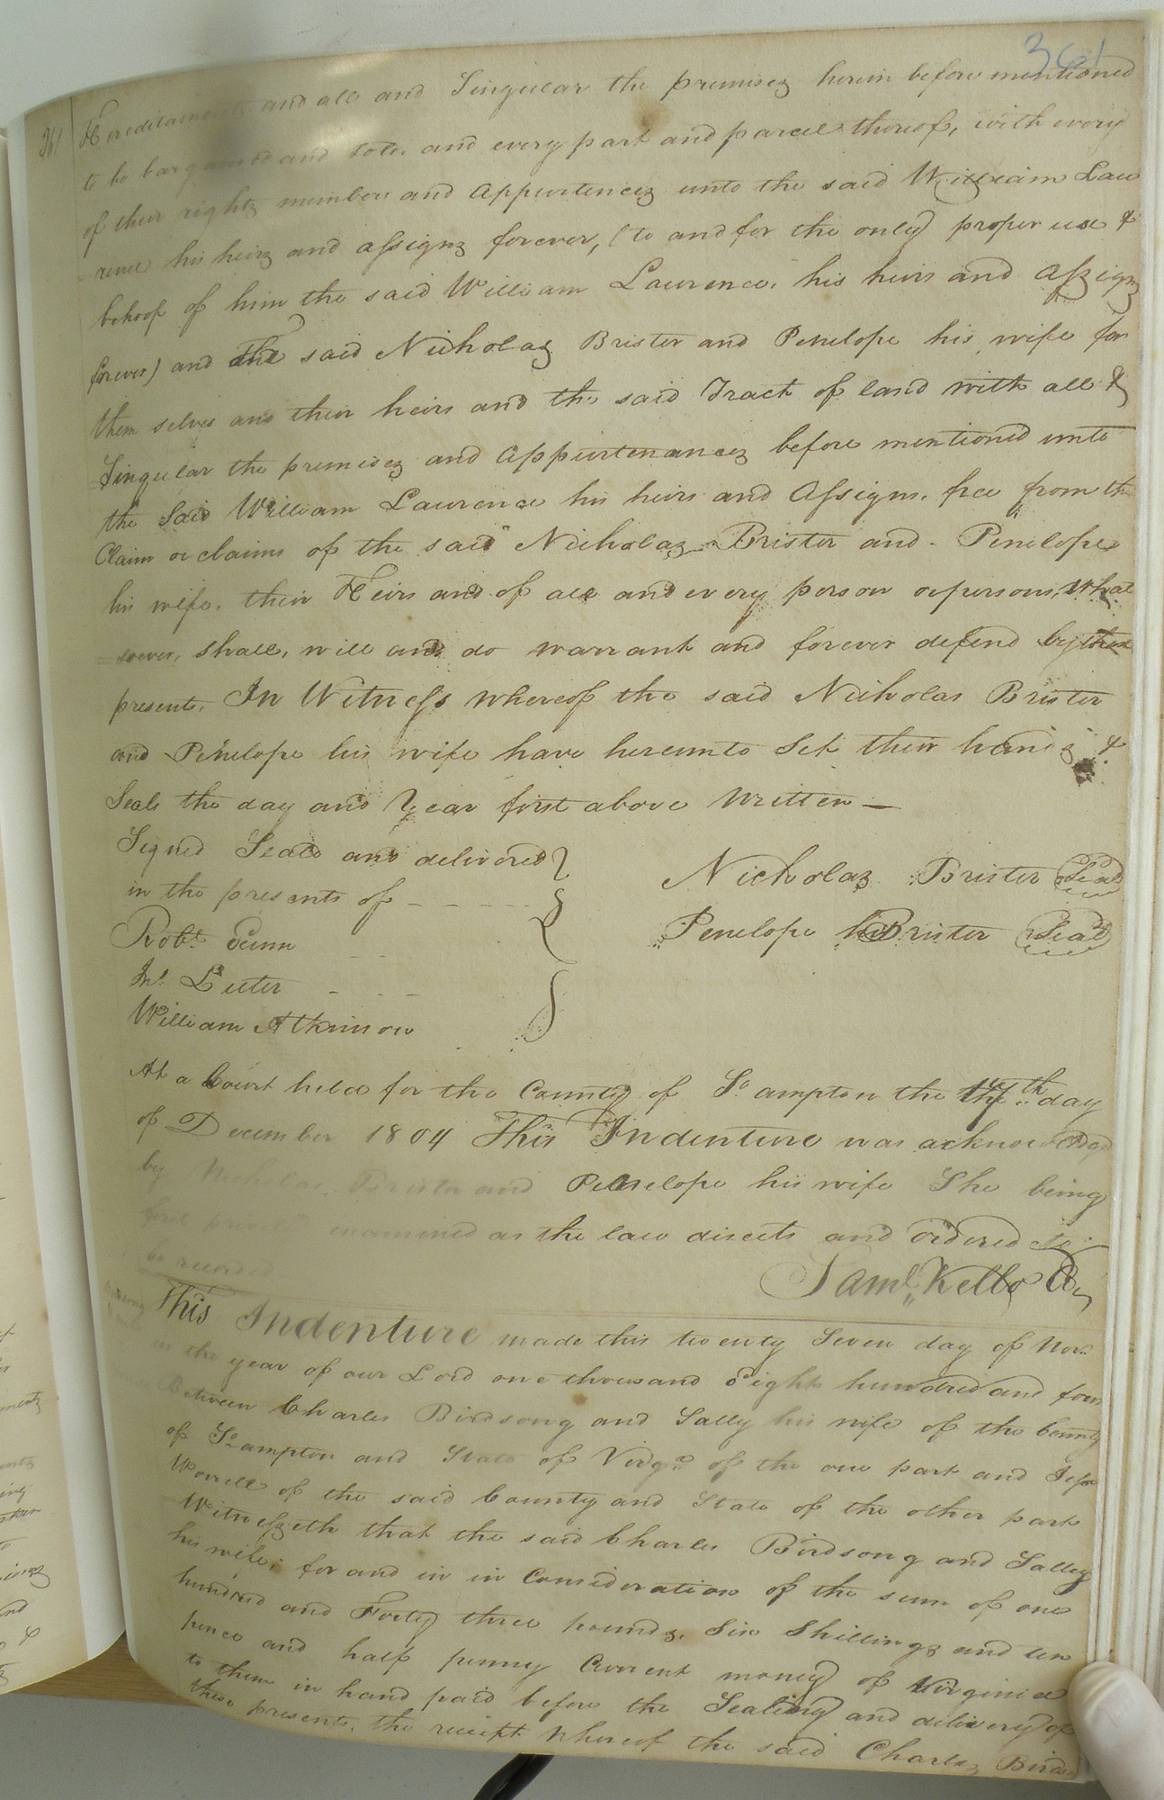 361
361
Hereditaments and all and Singular the premises herein before mentioned
to be bargained and sold. and every part and parcel thereof, with every
of their rights members and Appurtences unto the said William Law
=rence his heirs and assigns forever, (to and for the only proper use &
behoof of him the said William Lawrence, his heirs and Assigns
forever) and the said Nicholas Brister and Penelope his wife for
them selves and their heirs and the said Tract of land with all &
Singular the premises and Appurtenances before mentioned unto
the Said William Lawrence his heirs and Assigns. free from the
Claim or claims of the said Nicholas Brister and Penelope
his wife. their Heirs and of all and every person or persons, What
=soever, shall, will and do warrant and forever defend by these
presents. In Witness whereof the said Nicholas Brister
and Penelope his wife have hereunto Set their hands &
Seals the day and Year first above Written—
Signed Seald and delivered
in the presents of
Nicholas Brister Seal
Penelope Brister Seal
Robt. Gunn
Jno. Luter
William Atkinson
At a Court held for the County of So. ampton the 17th day
of December 1804 This Indenture was acknowledged
by Nicholas Brister and Penelope his wife She being
first privily examined as the law directs and ordered to
be recorded
Saml. Kello
This Indenture made this twenty Seven day of Novr.
in the year of our Lord one thousand Eight hundred and four
Between Charles Birdsong and Sally his wife of the County
of So. ampton and State of Virga. of the one part and Jesse
Worrell of the said County and State of the other part
Witnesseth that the said Charles Birdsong and Salley
his wife, for and in in Consideration of the sum of one
hundred and Forty three pounds, Six Shillings and ten
pence and half penny Current money of Virginia
to them in hand paid before the Sealing and delivery of
these presents, the receipt whereof the said Charles Birds